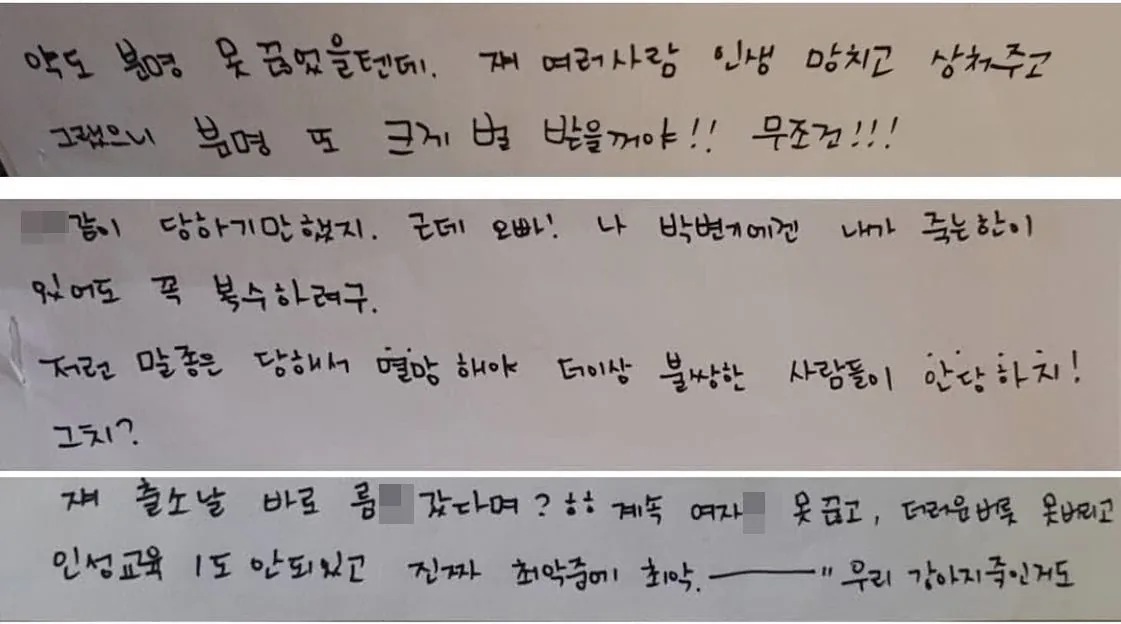 약도 분명 못 끊었을텐데. 쟤 여러사람 인생 망치고 상처주고
그랬으니 분명 또 크게 벌 받을꺼야!! 무조건!!!
같이 당하기만했지. 근데 오빠! 나 박변기에겐 내가 죽는한이
있어도 꼭 복수하려구.
저런 말종은 당해서 멸망해야 더이상 불쌍한 사람들이 안당하지!
그치?
쟤 출소날 바로 룸 갔다며? ㅎㅎ 계속 여자 못끊고, 더러운버릇 못버리고
인성교육 1도 안되있고 진짜 최악중에 최악.―――" 우리 강아지죽인거도